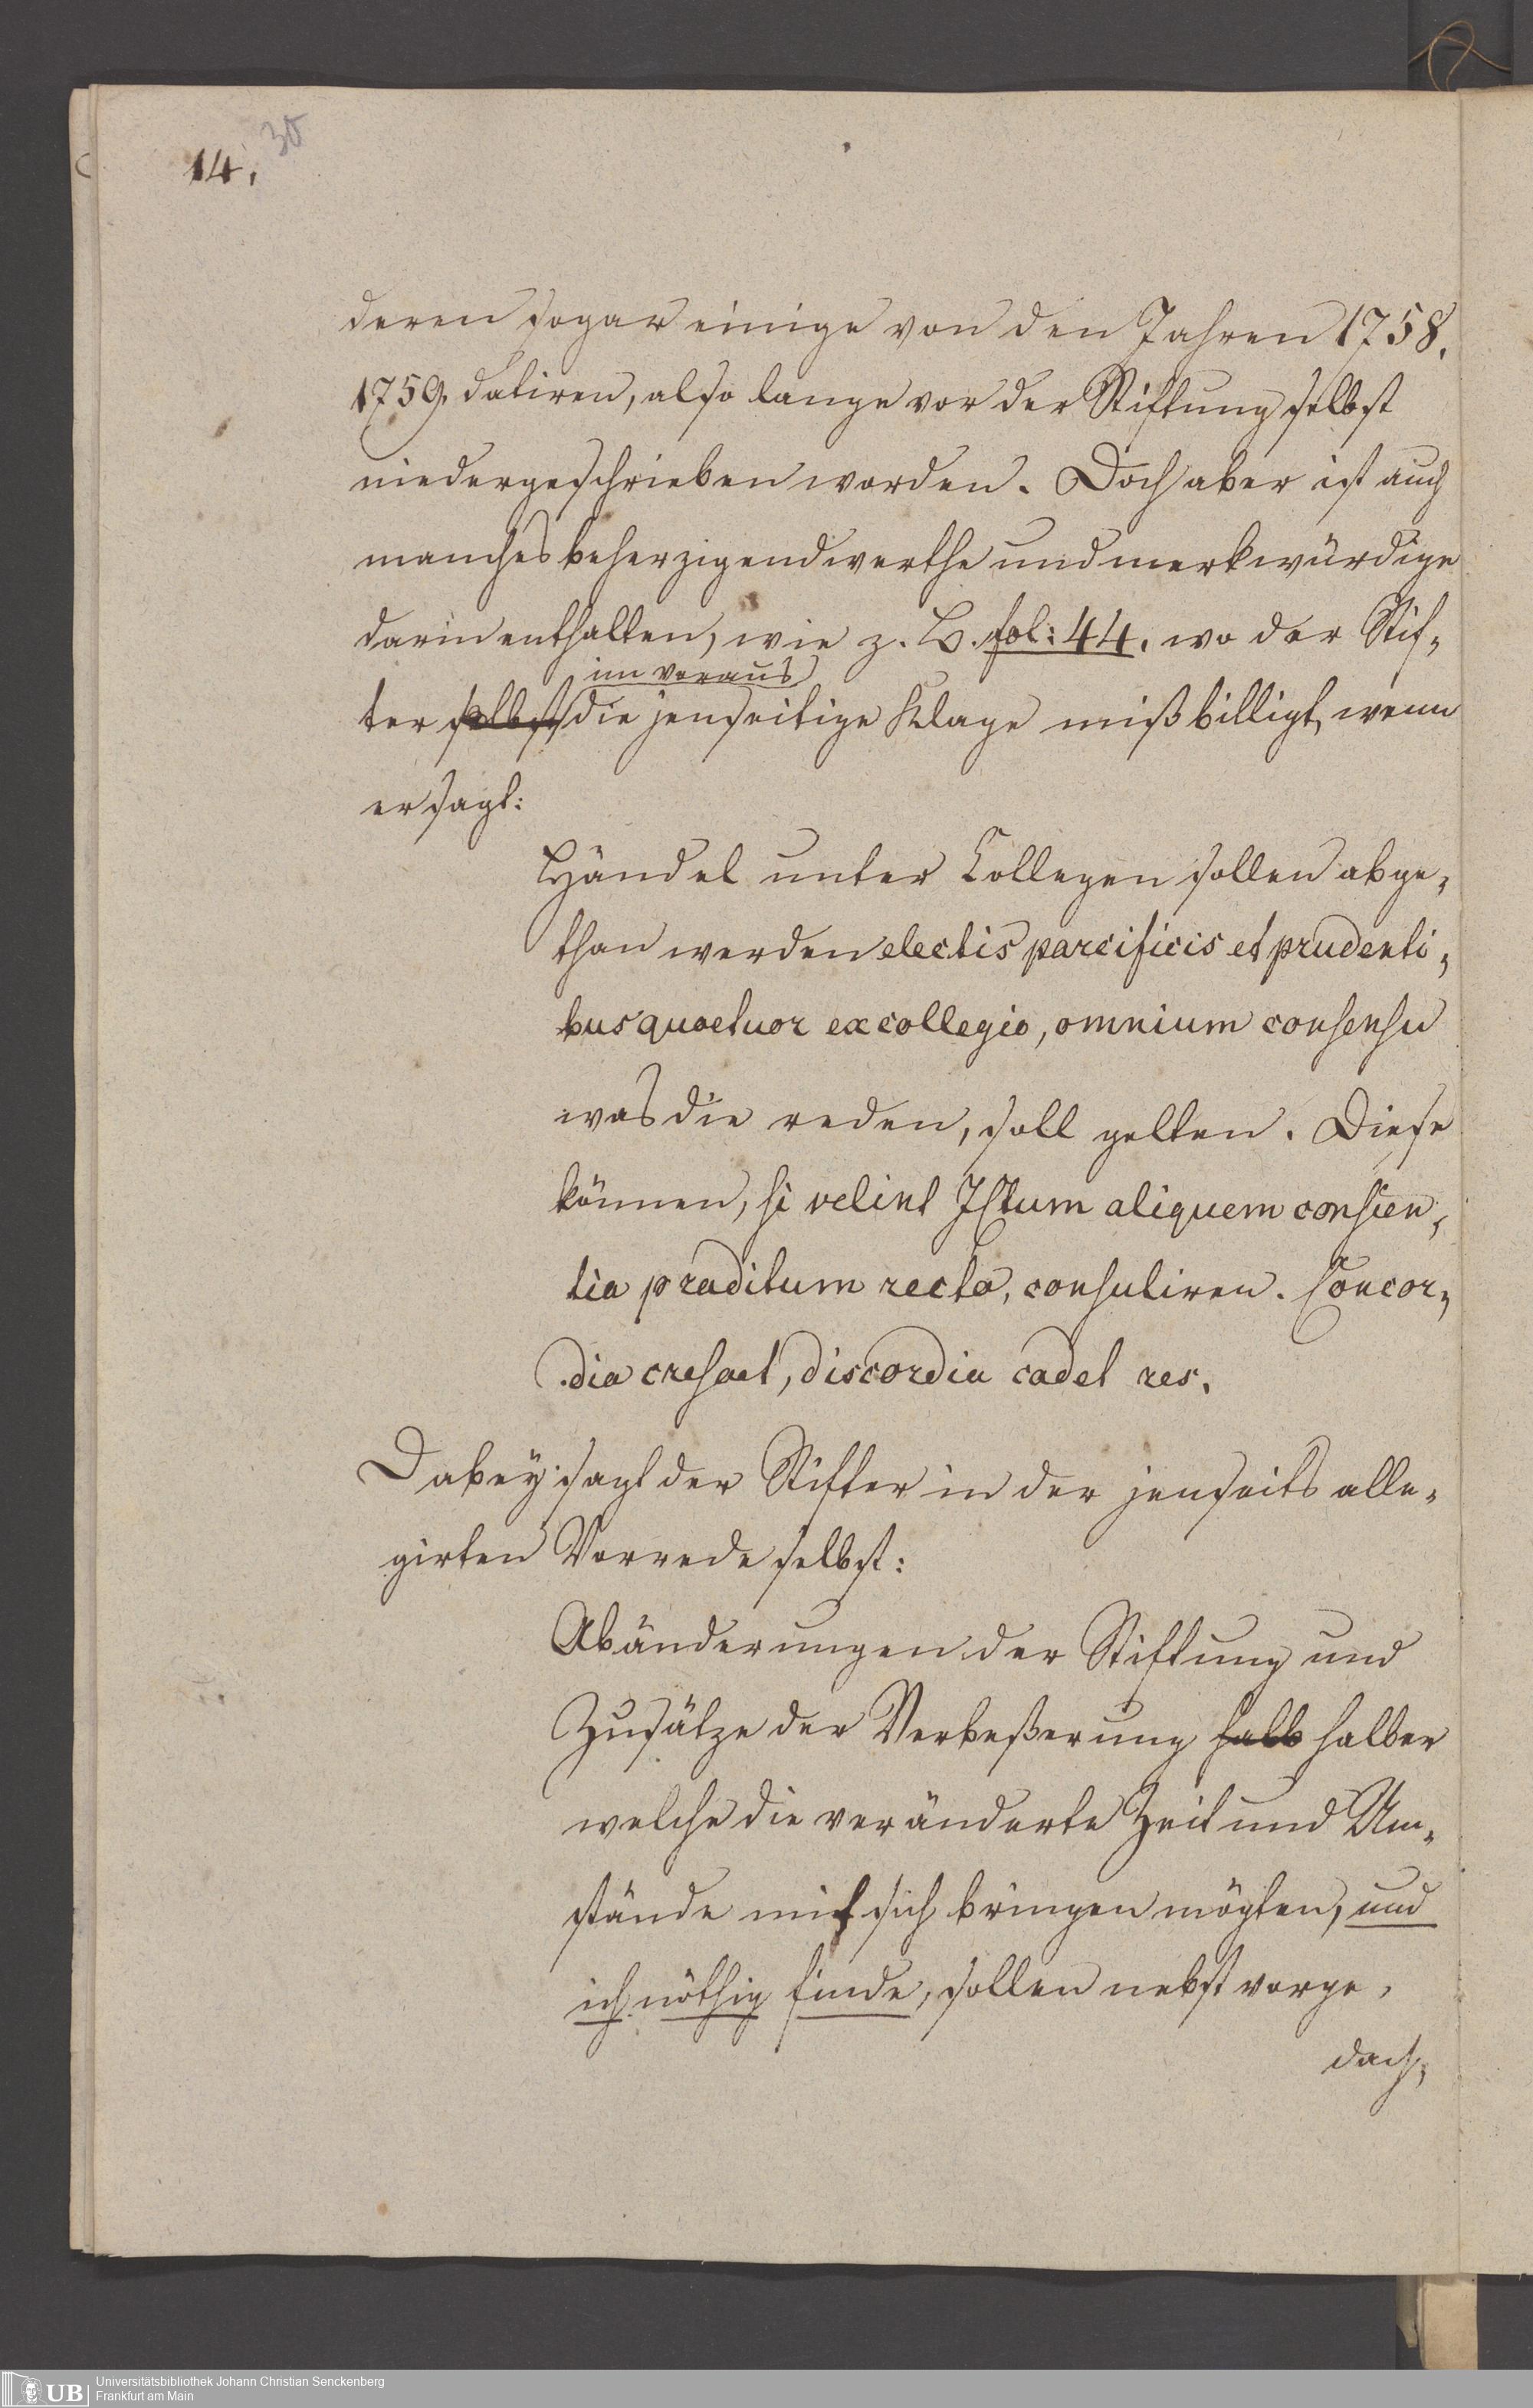 14.
30
deren sogar einige von den Jahren 1758.
1759. datiren, also lange vor der Stiftung selbst
niedergeschrieben worden. Doch aber ist auch
manches beherzigendwerthe und merkwürdige
darin enthalten, wie z. B. fol: 44. wo der Stif-
im voraus
ter selbst die jenseitige Klage mißbilligt, wenn
er sagt:
Händel unter Collegen sollen abge-
than werden electis parcificis et prudenti-
bus quatuor ex collegio, omnium consensu
was die reden, soll gelten. Diese
können, si velint Ictum aliquem conscien-
tia praditum recta, consuliren. Concor-
dia crescet, discordia cadet res.
Dabey sagt der Stifter in der jenseits alle-
girten Vorrede selbst:
Abänderungen der Stiftung und
Zusätze der Verbeßerung halb halber
welche die veränderte Zeit und Um-
stände mit sich bringen mögten, und
ich nöthig finde, sollen nebst vorge-
dach-
UB
Universitätsbibliothek Johann Christian Senckenberg
Frankfurt am Main